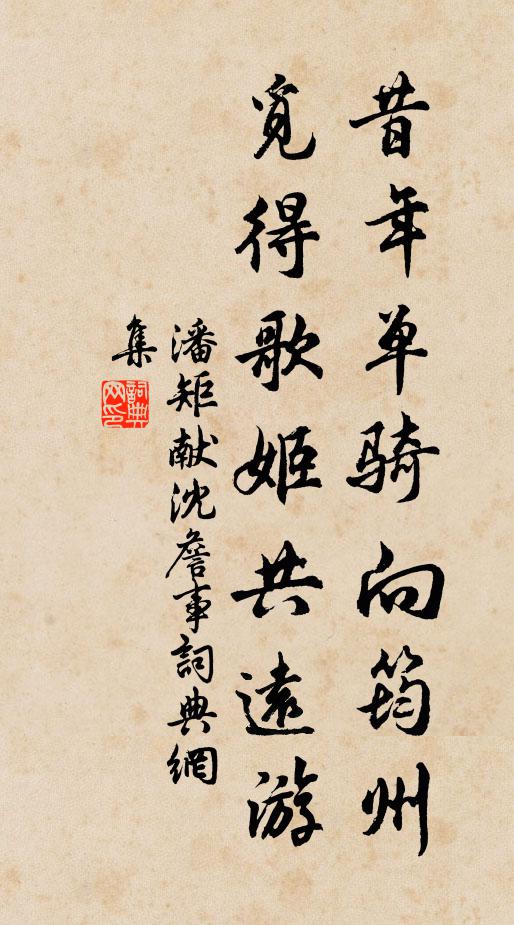 昔年单骑向筠州
觅得歌姬共遠游
潘矩献沈詹事詞典網
集
詞典
网印